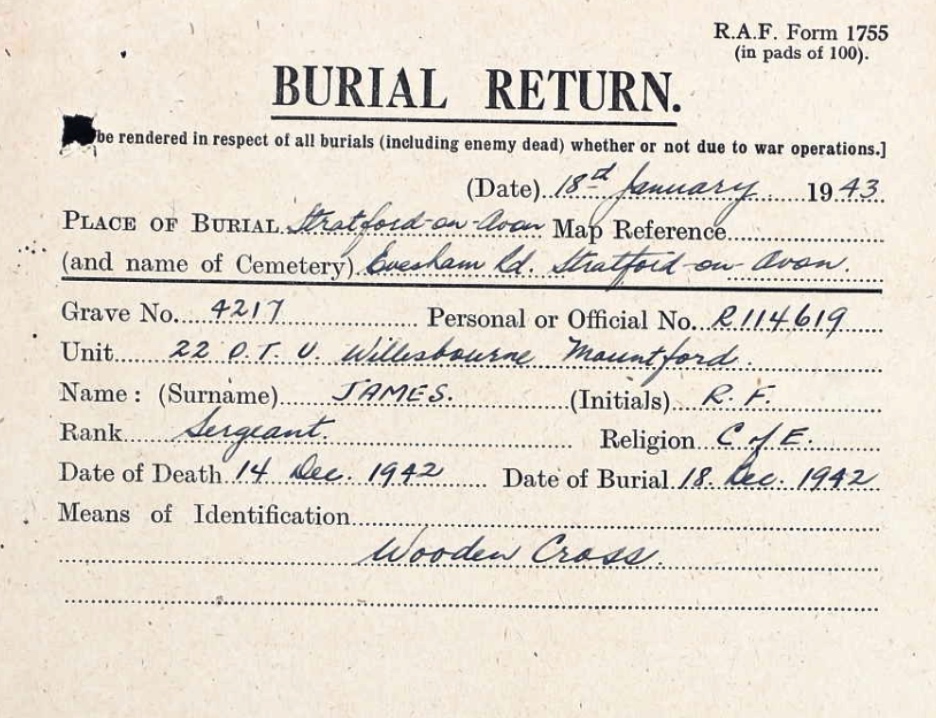 R.A.F. Form 1755
(in pads of 100).
BURIAL RETURN.
be rendered in respect of all burials (including enemy dead) whether or not due to war operations.]
(Date) 18th January 1943
PLACE OF BURIAL Stratford-on-Avon Map Reference
(and name of Cemetery) Evesham Rd. Stratford-on-Avon.
Grave No. 4217 Personal or Official No. R114619
Unit 22 O.T.U. Willesbourne Mountford.
Name: (Surname) JAMES. (Initials) R.F.
Rank Sergeant. Religion C of E.
Date of Death 14 Dec. 1942 Date of Burial 18. Dec. 1942
Means of Identification
Wooden Cross.